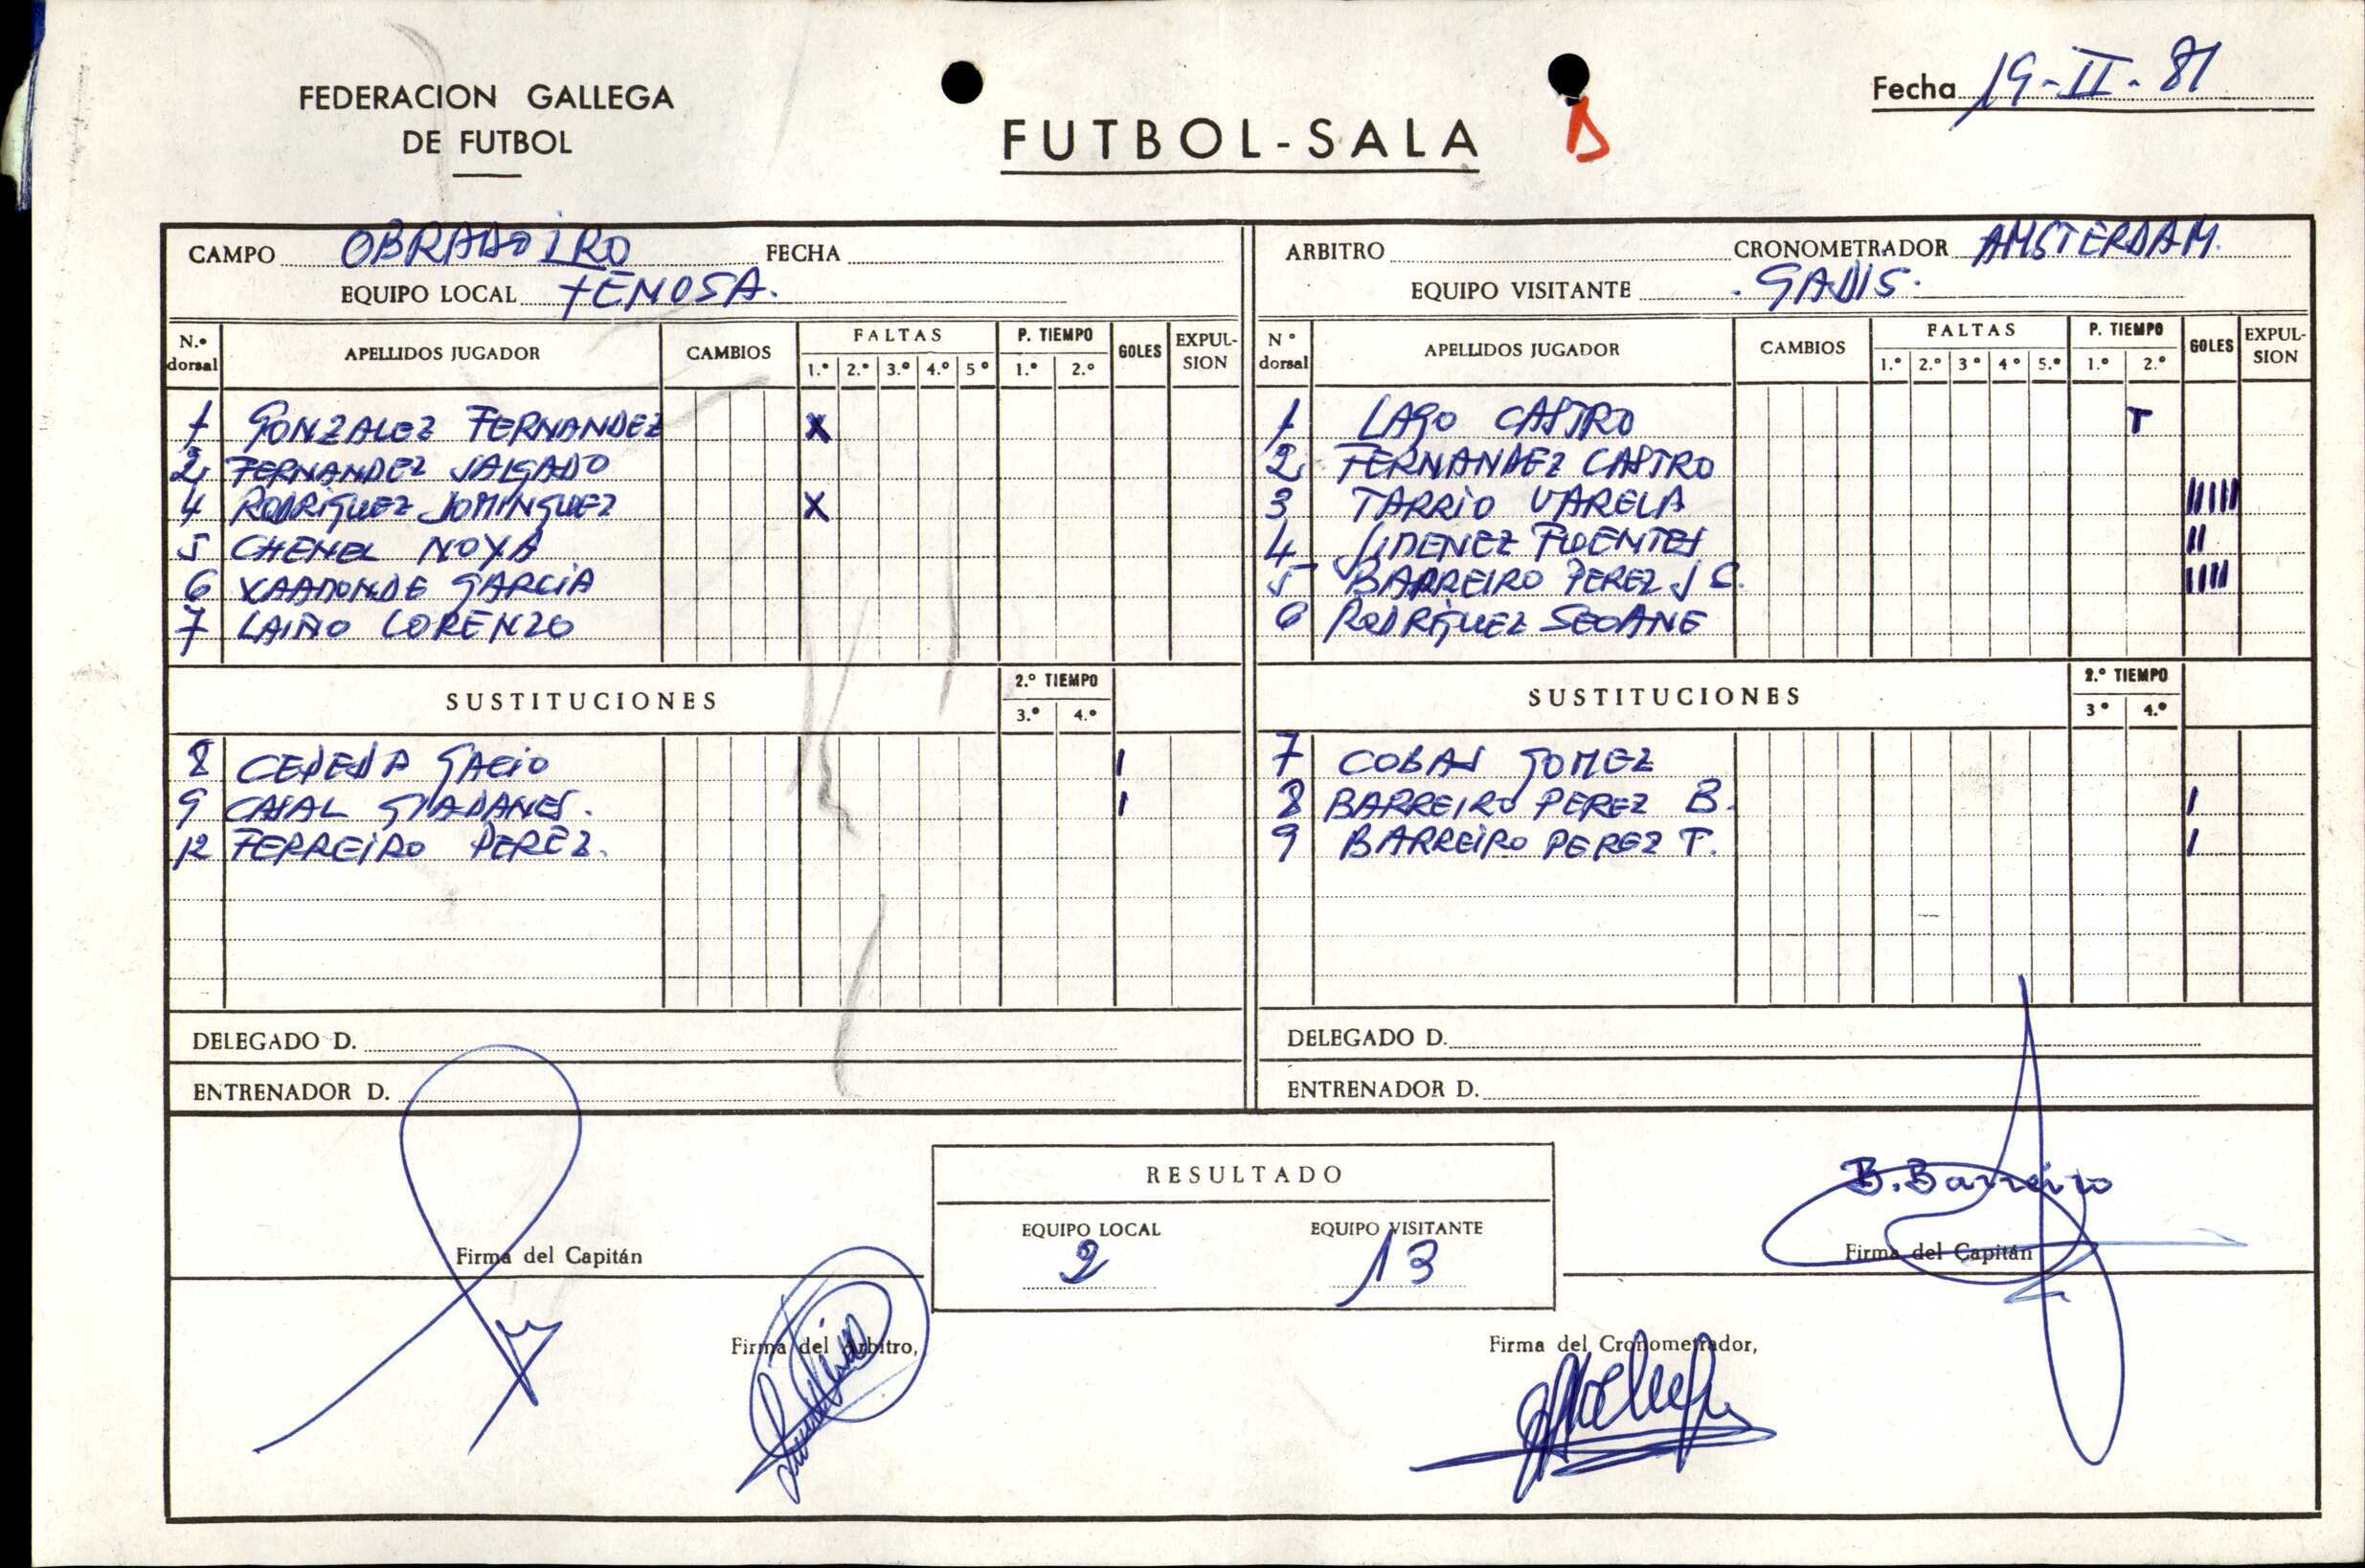 FEDERACION GALLEGA
DE FUTBOL
FUTBOL-SALA
Fecha 19-II-81
CAMPO OBRADOIRO FECHA
EQUIPO LOCAL FENOSA.
N.º dorsal APELLIDOS JUGADOR CAMBIOS FALTAS 1.º 2.º 3.º 4.º 5º P. TIEMPO 1.º 2.º GOLES EXPULSION
1 GONZALEZ FERNANDEZ X
2 FERNANDEZ SALGADO
4 RODRIGUEZ DOMINGUEZ X
5 CHENEL NOYA
6 XAAMONDE GARCIA
7 LAIÑO LORENZO
SUSTITUCIONES 2.º TIEMPO 3.º 4.º
8 CEPEDA GACIO I
9 CASAL I
12 FERREIRO PEREZ.
DELEGADO D.
ENTRENADOR D.
ARBITRO CRONOMETRADOR AMSTERDAM.
EQUIPO VISITANTE . GADIS.
Nº dorsal APELLIDOS JUGADOR CAMBIOS FALTAS 1.º 2.º 3º 4º 5.º P. TIEMPO 1.º 2.º GOLES EXPULSION
1 LAGO CASTRO T
2 FERNANDEZ CASTRO
3 TARRIO VARELA IIIII
4 JIMENEZ FUENTES II
5 BARREIRO PEREZ J C. IIII
6 RODRIGUEZ SEOANE
SUSTITUCIONES 2.º TIEMPO 3º 4.º
7 COBAS GOMEZ
8 BARREIRO PEREZ B. I
9 BARREIRO PEREZ T. I
DELEGADO D.
ENTRENADOR D.
RESULTADO
EQUIPO LOCAL EQUIPO VISITANTE
2 13
Firma del Capitán
B. Barreiro
Firma del Capitán
Firma del Arbitro,
Firma del Cronometrador,